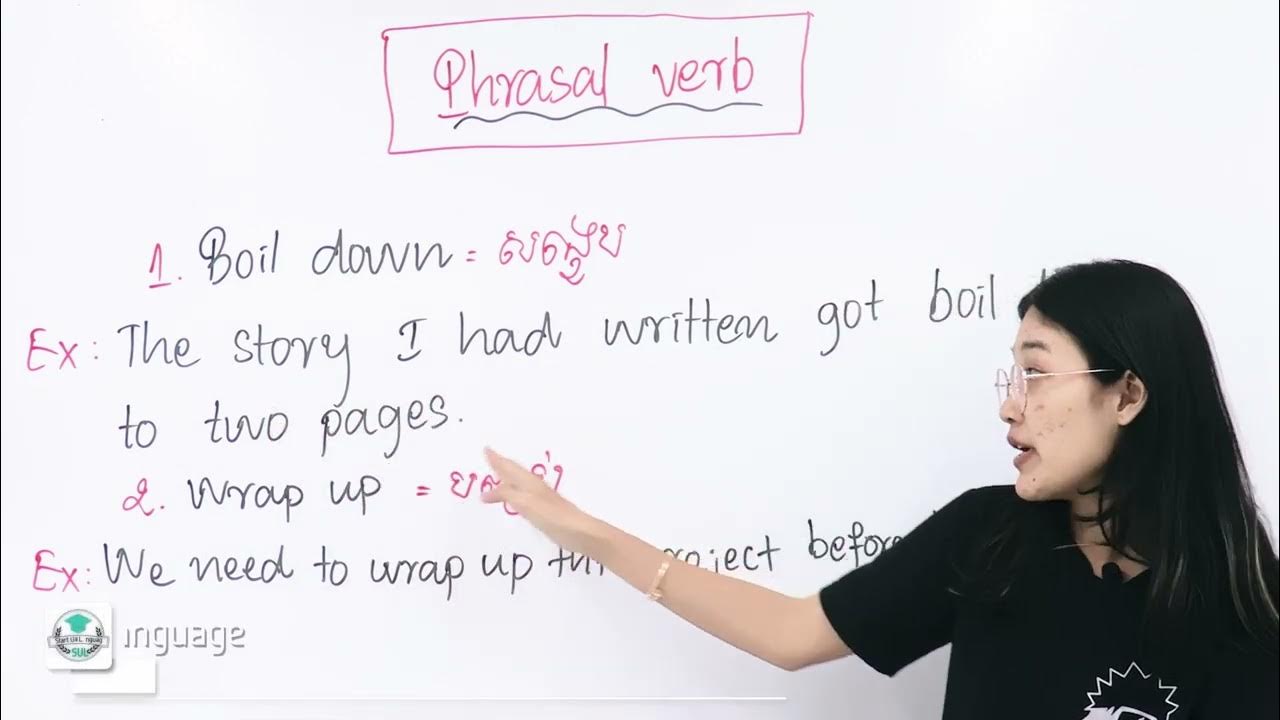 Phrasal verb
1. Boil down = សង្ខេប
Ex: The story I had written got boil
to two pages.
2. Wrap up =
Ex: We need to wrap up project before
Start Up L nguag
SUL
nguage